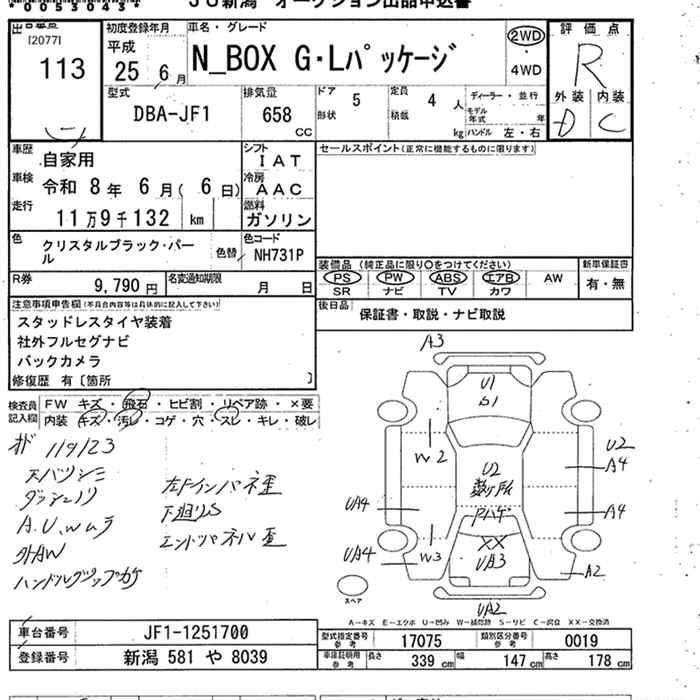 *00530434*
JU新潟 オークション出品申込書
[2077]
113
初度登録年月
平成
25 6月
車名・グレード
N_BOX G・Lパッケージ
2WD
4WD
評価点
R
外装 内装
D C
型式
DBA-JF1
排気量
658
CC
ドア
5
形状
定員
4 人
積載
kg
ディーラー・並行
モデル年式 年
ハンドル 左・右
車歴
自家用
シフト
IAT
セールスポイント(正常に機能するものに限ります)
車検
令和 8年 6月( 6日)
冷房
AAC
走行
11万9千132 km
燃料
ガソリン
色
クリスタルブラック・パール
色替
色コード
NH731P
装備品 (純正品に限り○をつけてください)
新車保証書
PS PW ABS エアB AW
SR ナビ TV カワ
有・無
R券
9,790円
名変通知期限
月 日
後日品
保証書・取説・ナビ取説
注意事項申告欄(不具合内容等は具体的に記入して下さい)
スタッドレスタイヤ装着
社外フルセグナビ
バックカメラ
修復歴 有〔箇所 〕
検査員記入欄
FW キズ・飛石・ヒビ割・リペア跡・×要
内装 キズ・汚レ・コゲ・穴・スレ・キレ・破レ
119123
A.U.wムラ
外AW
下廻りS
A3
U1
S1
W2
U2
U2
A4
UA4
A4
UA4
W3
XX
UA3
A2
UA2
スペア
A-キズ E-エクボ U-凹み W-補修跡 S-サビ C-腐食 XX-交換済
車台番号
JF1-1251700
登録番号
新潟 581 や 8039
型式指定番号 参考
17075
類別区分番号 参考
0019
車庫証明用 参考
長さ 339 cm
幅 147 cm
高さ 178 cm